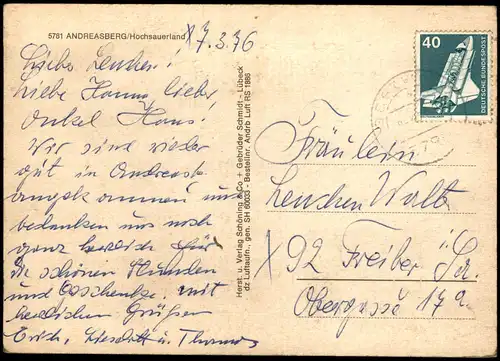 5781 ANDREASBERG/Hochsauerland
7.3.76
Liebe Lenchen!
Liebe Hanna lieber
Onkel Hans!
Wir sind wieder
gut in Andreasb.
angekommen und
bedanken uns noch
ganz herzlich für
die schönen Stunden
und Geschenke. mit
herzlichen Grüßen
Erich, Liesbeth u. Thomas
Herst. u. Verlag Schöning & Co + Gebrüder Schmidt - Lübeck
dz Luftaufn., gen. SH 60033 - Bestellnr. Andrb Luft RS 1886
40
DEUTSCHE BUNDESPOST
Fräulein
Lenchen Walt
92 Freiber Sa.
Obergasse 17a